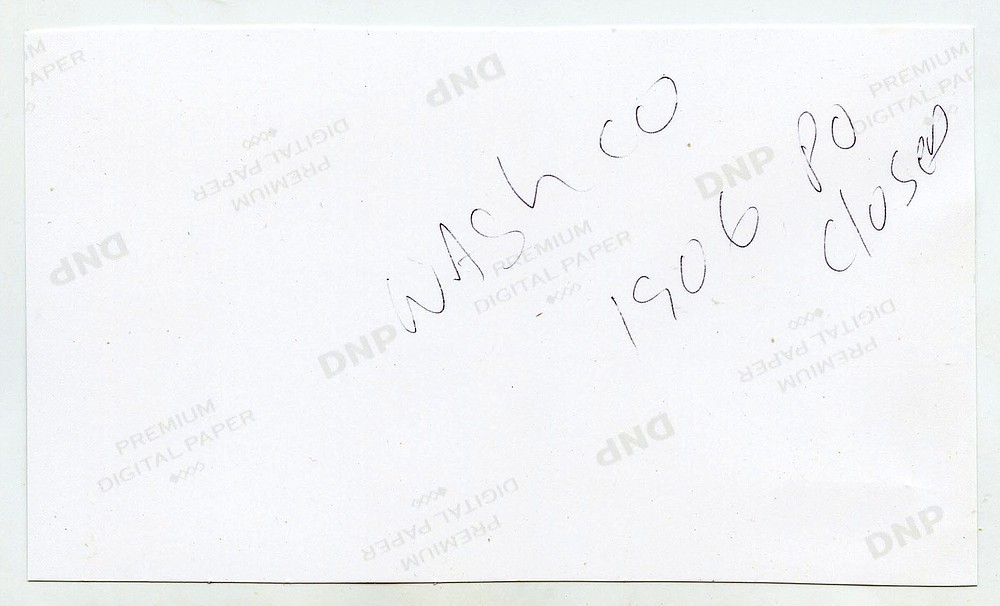 WASh CO
1906 PO
closed
PREMIUM
DIGITAL PAPER
DNP
DNP
PREMIUM
DIGITAL PAPER
DIGITAL PAPER
PREMIUM
DNP
DNP
PREMIUM
DIGITAL PAPER
DNP
DIGITAL PAPER
PREMIUM
PREMIUM
DIGITAL PAPER
DNP
DIGITAL PAPER
PREMIUM
DNP